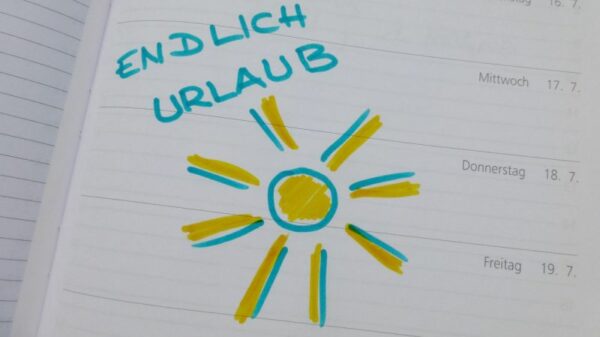 ENDLICH
URLAUB
16. 7.
Mittwoch 17. 7.
Donnerstag 18. 7.
Freitag 19. 7.